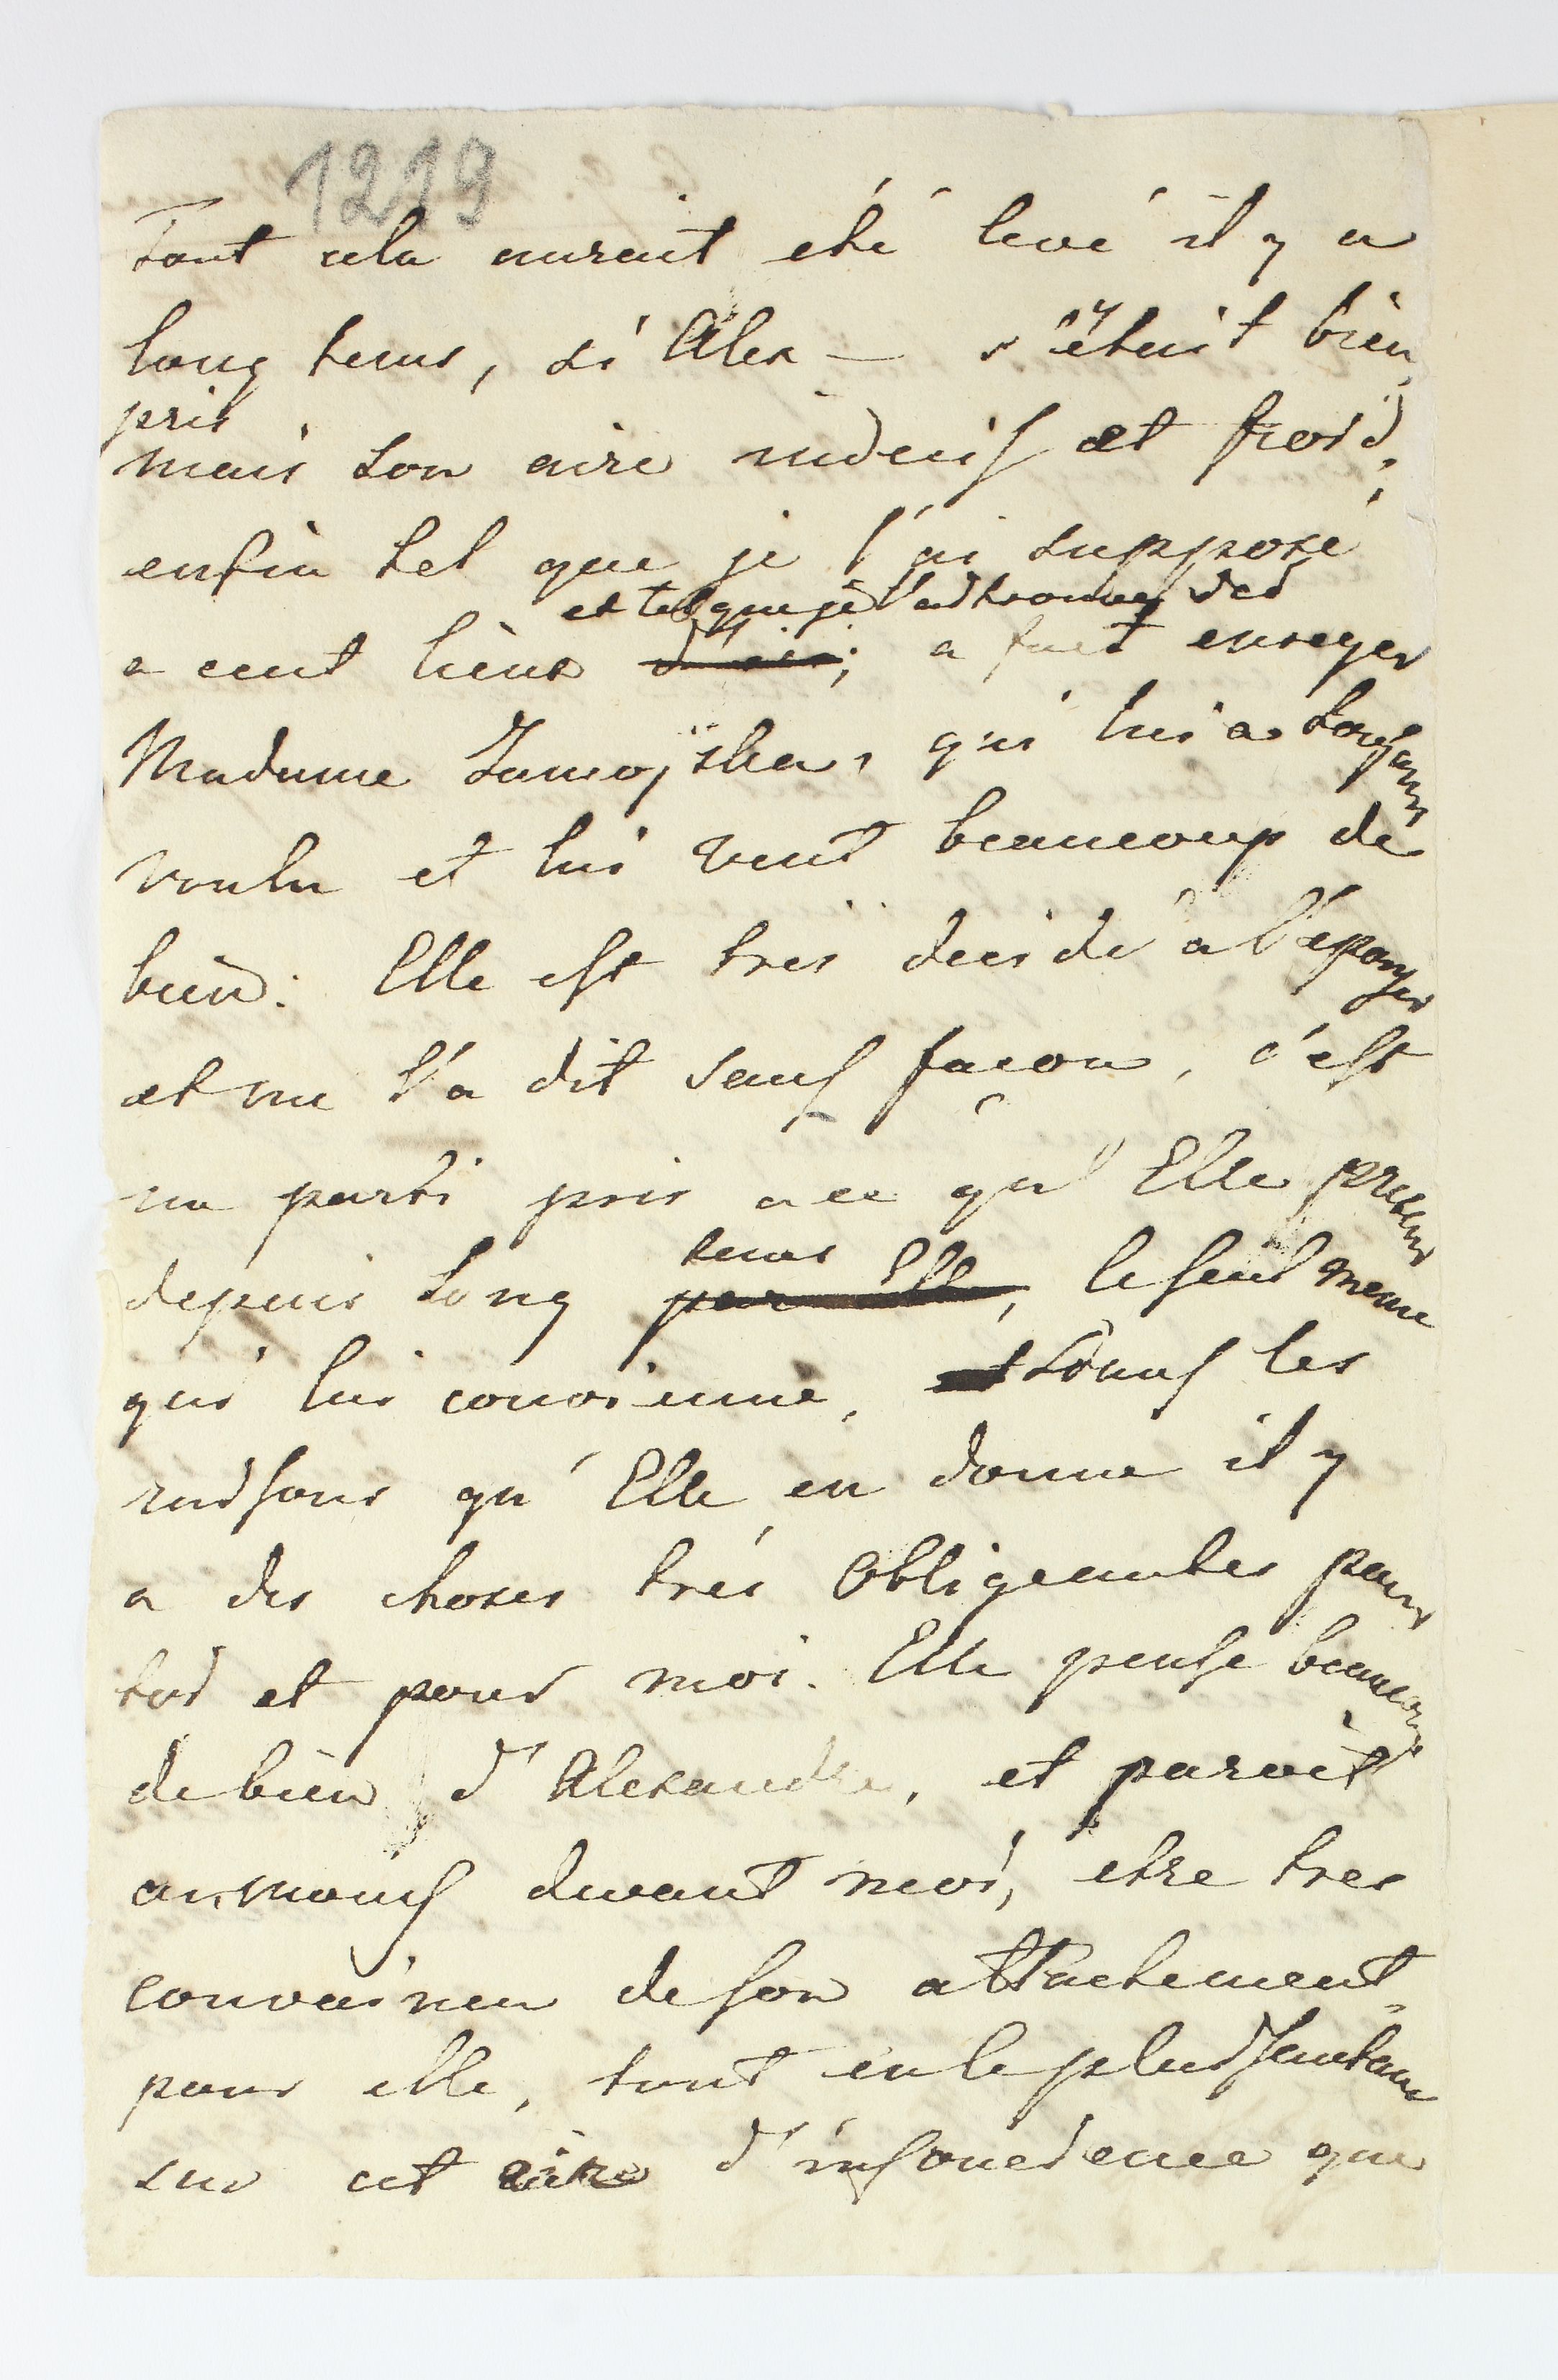 1219
Tout cela auroit eté levé il y a
long tems, si Alex — s'étoit bien
pris
mais son aire indecis et froid,
enfin tel que je l'ai supposé
et tel que je l'ai trouvé
a cent lieux d'ici; a fait enrager
Madame Zamojska, qui lui a toujours
voulu et lui veut beaucoup de
bien. Elle est tres decidé a l'épouser
et me l'a dit sans façon, c'est
un parti pris a ce qu'Elle pretend
depuis long tems
par Elle, le seul meme
qui lui convienne, dans les
raisons qu'Elle en donne il y
a des choses très obligeantes pour
toi et pour moi. Elle pense beaucoup
de bien d'Alexandre, et paroit
au moins devant moi, etre tres
convaincu de son attachement
pour elle, tout en le plaisantant
sur cet aire d'insoucience que